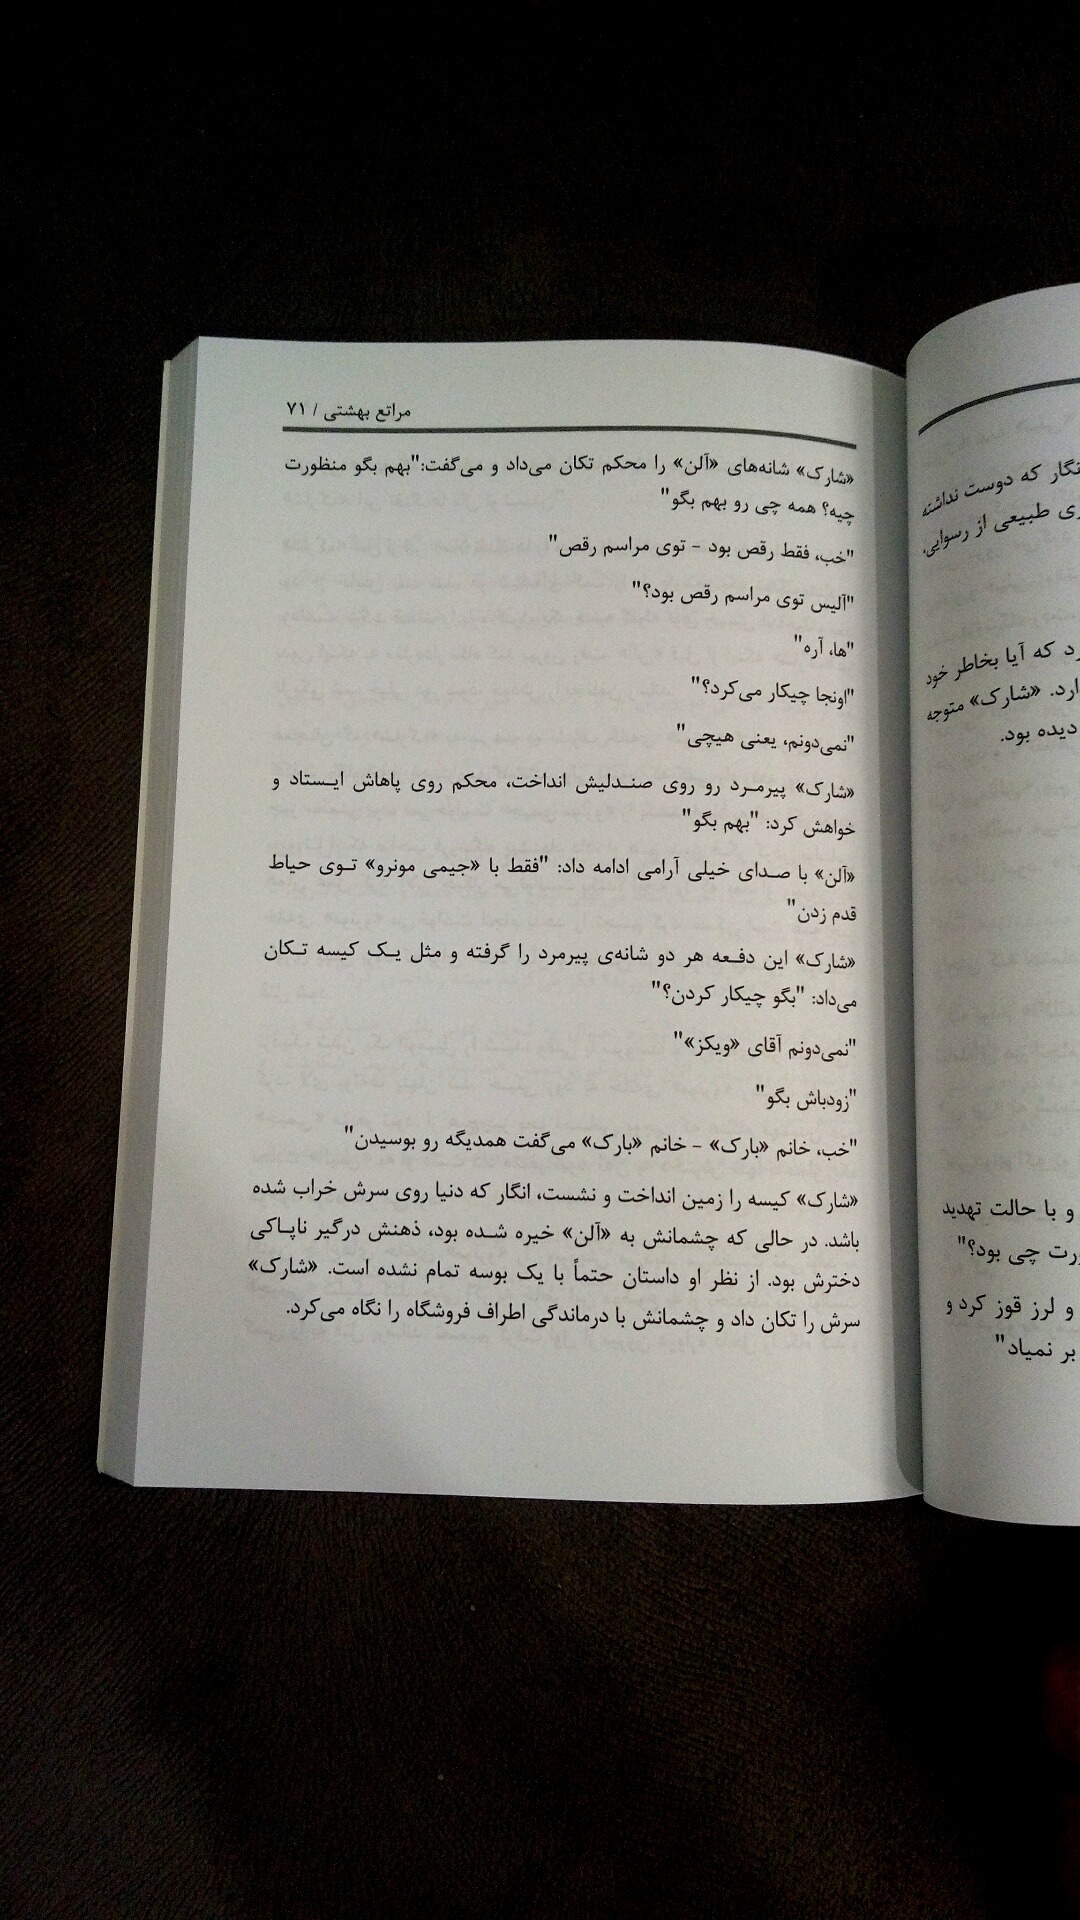 مراتع بهشتی / ۷۱
«شارک» شانه‌های «آلن» را محکم تکان می‌داد و می‌گفت:"بهم بگو منظورت
چیه؟ همه چی رو بهم بگو"
"خب، فقط رقص بود - توی مراسم رقص"
"آلیس توی مراسم رقص بود؟"
"ها، آره"
"اونجا چیکار می‌کرد؟"
"نمی‌دونم، یعنی هیچی"
«شارک» پیرمرد رو روی صندلیش انداخت، محکم روی پاهاش ایستاد و
خواهش کرد: "بهم بگو"
«آلن» با صدای خیلی آرامی ادامه داد: "فقط با «جیمی مونرو» توی حیاط
قدم زدن"
«شارک» این دفعه هر دو شانه‌ی پیرمرد را گرفته و مثل یک کیسه تکان
می‌داد: "بگو چیکار کردن؟"
"نمی‌دونم آقای «ویکز»"
"زودباش بگو"
"خب، خانم «بارک» - خانم «بارک» می‌گفت همدیگه رو بوسیدن"
«شارک» کیسه را زمین انداخت و نشست، انگار که دنیا روی سرش خراب شده
باشد. در حالی که چشمانش به «آلن» خیره شده بود، ذهنش درگیر ناپاکی
دخترش بود. از نظر او داستان حتماً با یک بوسه تمام نشده است. «شارک»
سرش را تکان داد و چشمانش با درماندگی اطراف فروشگاه را نگاه می‌کرد.
که دوست نداشته
طبیعی از رسوایی،
که آیا بخاطر خود
«شارک» متوجه
دیده بود.
و با حالت تهدید
چی بود؟"
و لرز قوز کرد و
بر نمیاد"